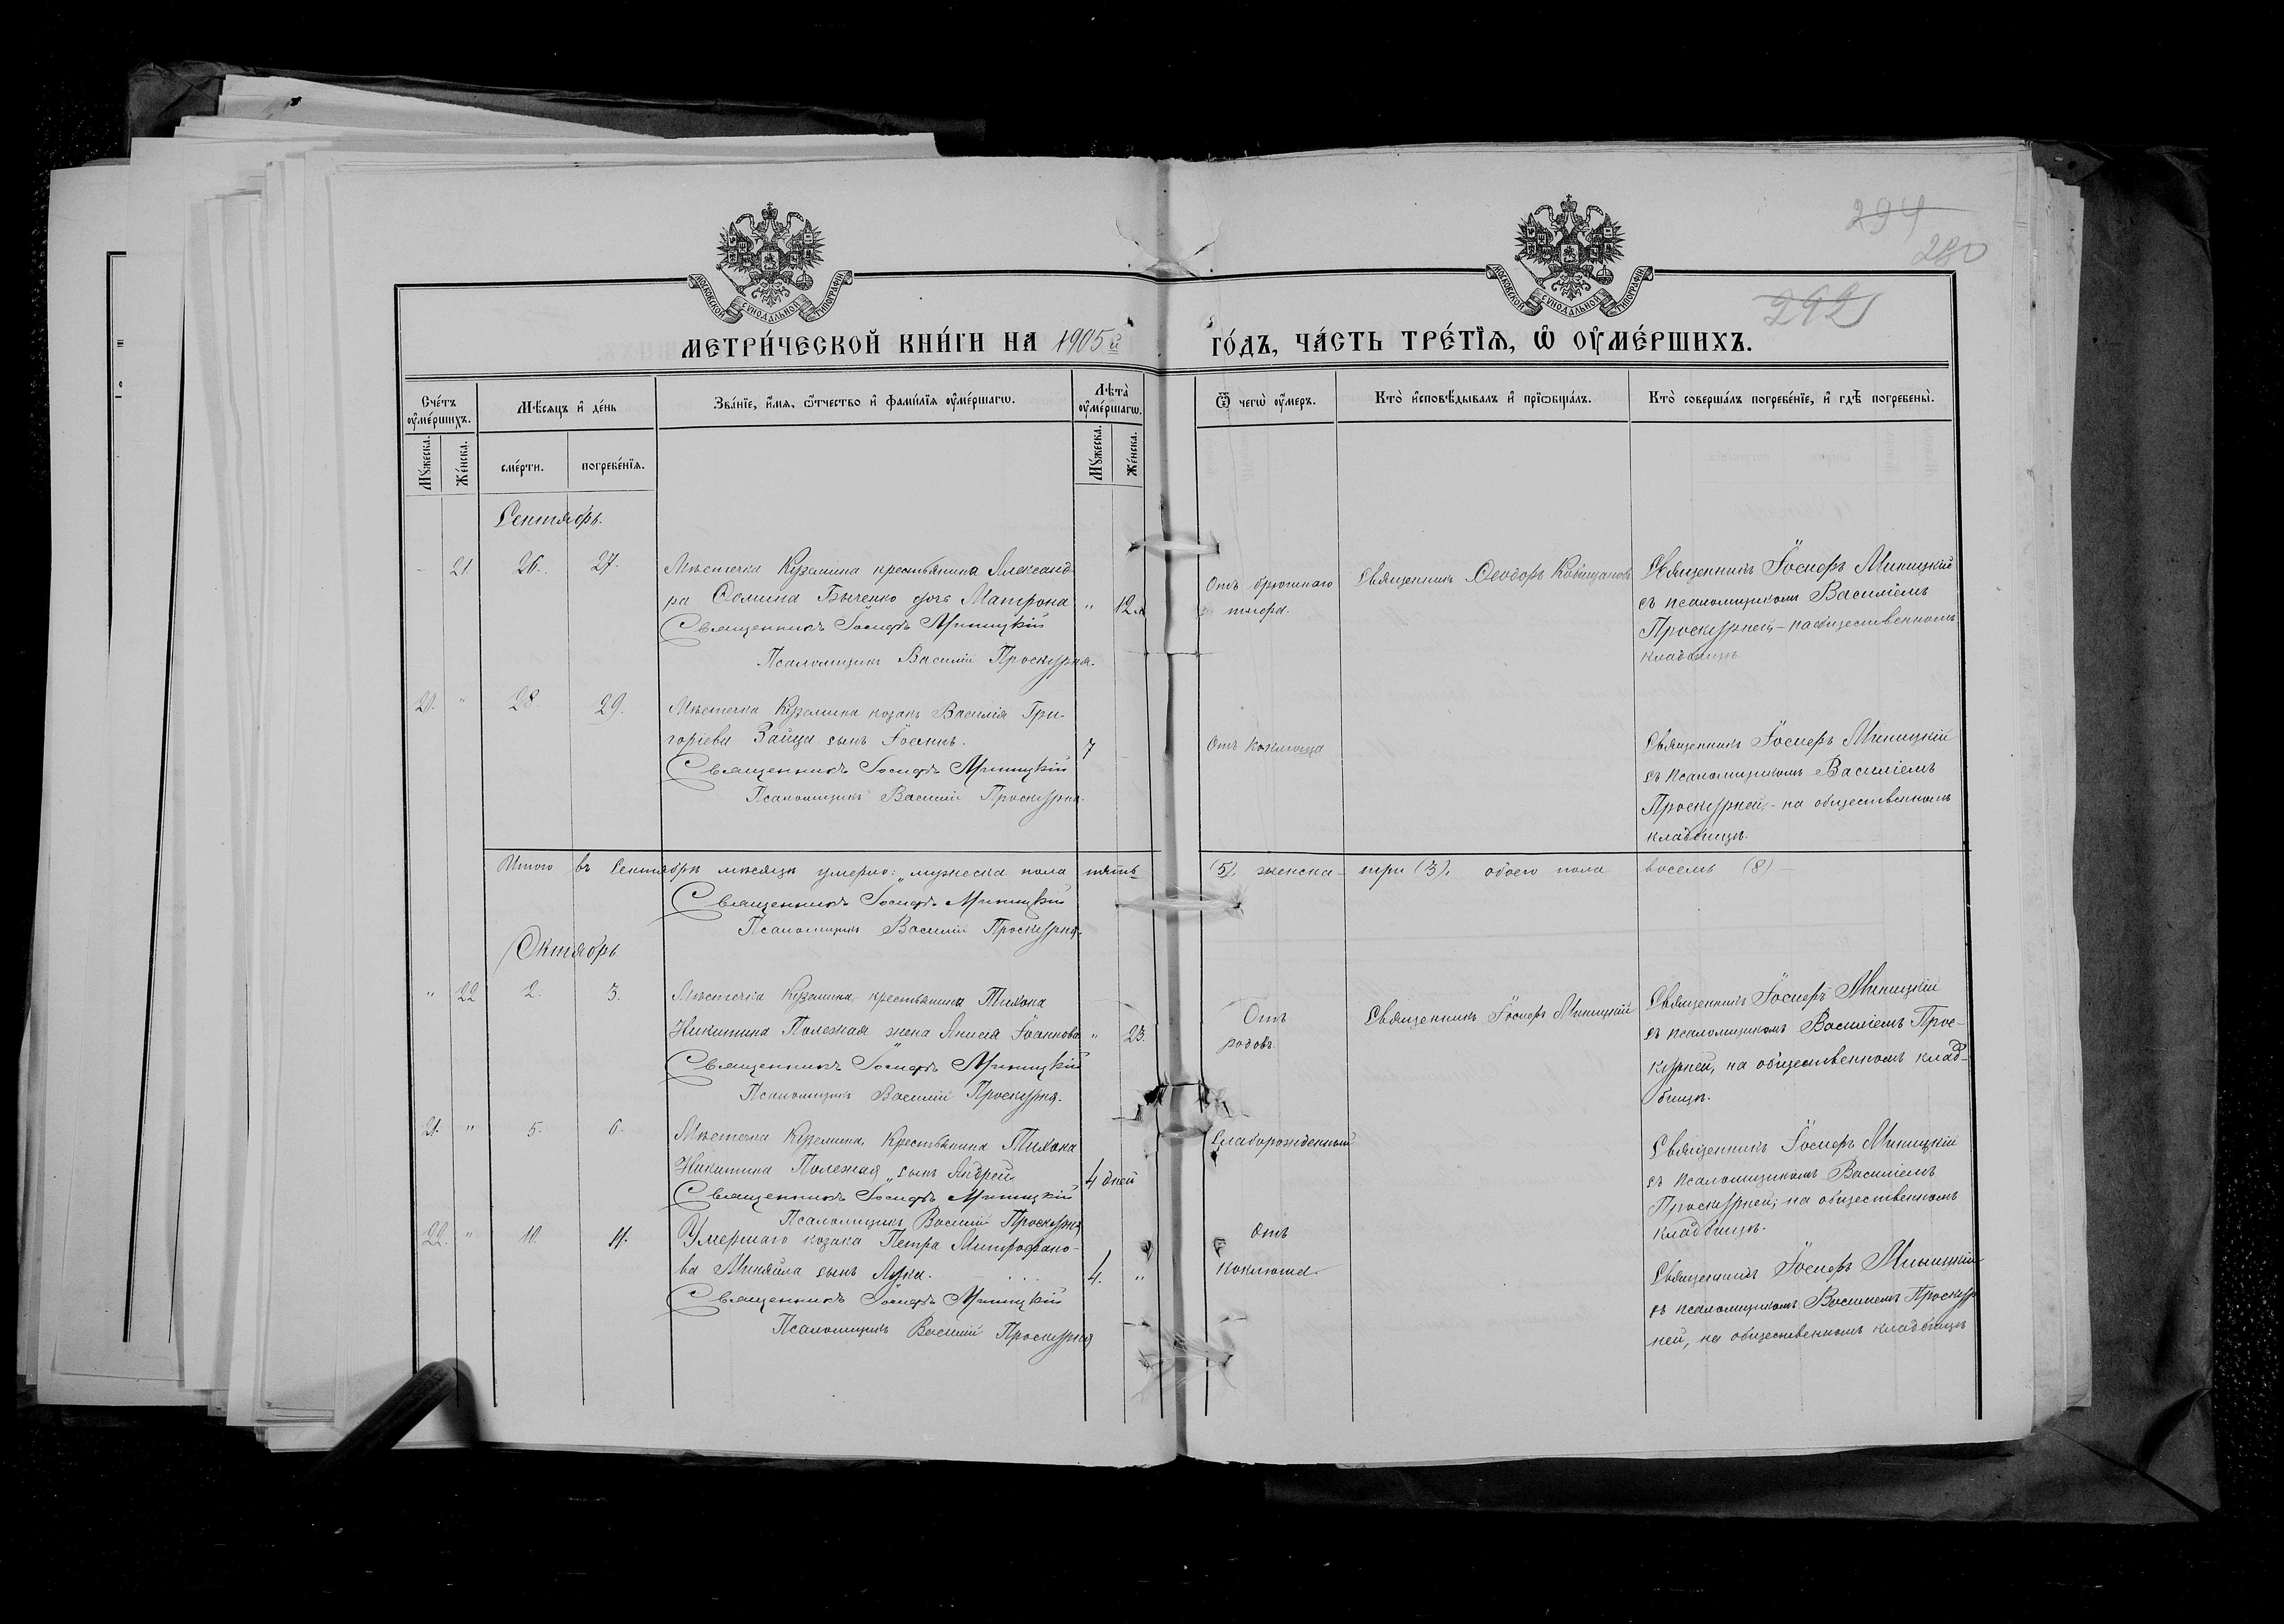 294
280
292
МОСКОВСКОЙ СѴНОДАЛЬНОЙ ТИПОГРАФІИ
МОСКОВСКОЙ СѴНОДАЛЬНОЙ ТИПОГРАФІИ
МЕТРИ́ЧЕСКОЙ КНИ́ГИ НА 1905й
ГО́ДЪ, ЧА́СТЬ ТРЕ́ТЇѦ, Ѡ҆ ОУ҆МЕ́РШИХЪ.
Сче́тъ оу҆ме́ршихъ.
Мꙋ́жеска.
Же́нска.
Мѣ́сяцъ и҆ де́нь
сме́рти.
погребе́нїѧ.
Зва́нїе, и҆́мѧ, ѻ҆́тчество и҆ фами́лїѧ оу҆ме́ршагѡ.
Лѣта̀ оу҆ме́ршагѡ.
Мꙋ́жеска.
Же́нска.
Ѿ чегѡ̀ оу҆́меръ.
Кто̀ и҆сповѣ́дывалъ и҆ прїѡбща́лъ.
Кто̀ соверша́лъ погребе́нїе, и҆ гдѣ̀ погребены̀.
Сентябрь.
- 21. 26. 27. Мѣстечка Куземина крестьянина Александ-
ра Ѳомина Быченко дочь Матрона " 12 л
Священникъ Іосифъ Миницкій
Псаломщикъ Василій Проскурня.
Отъ брюшного
тифа.
Священникъ Ѳеодоръ Кобищановъ
Священникъ Іосифъ Миницкій
съ псаломщикомъ Василіемъ
Проскурней, - на общественномъ
кладбищѣ
20. " 28 29. Мѣстечка Куземина козака Василія Гри-
горіева Зайца сынъ Іоаннъ. 7
Священникъ Іосифъ Миницкій
Псаломщикъ Василій Проскурня.
Отъ коклюша
Священникъ Іосифъ Миницкій
съ псаломщикомъ Василіемъ
Проскурней, - на общественномъ
кладбищѣ.
Итого въ Сентябрѣ мѣсяцѣ умерло: мужеска пола пять (5), женска - три (3), обоего пола восемь (8) -
Священникъ Іосифъ Миницкій
Псаломщикъ Василій Проскурня.
Октябрь
" 22 2. 3. Мѣстечка Куземина, крестьянина Тихона
Никитина Полежая жена Анисія Іоаннова " 23.
Священникъ Іосифъ Миницкій
Псаломщикъ Василій Проскурня.
Отъ
родовъ
Священникъ Іосифъ Миницкій
Священникъ Іосифъ Миницкій
съ псаломщикомъ Василіемъ Прос-
курней, на общественномъ клад-
бищѣ.
21. " 5. 6. Мѣстечка Куземина, крестьянина Тихона
Никитина Полежая, сынъ Андрей 4 дней
Священникъ Іосифъ Миницкій
Псаломщикъ Василій Проскурня
Слаборожденный
Священникъ Іосифъ Миницкій
съ псаломщикомъ Василіемъ
Проскурней, на общественномъ
кладбищѣ.
22. " 10. 11. Умершаго козака Петра Митрофано-
ва Миняйла сынъ Лука. 4. "
Священникъ Іосифъ Миницкій
Псаломщикъ Василій Проскурня
Отъ
коклюша.
Священникъ Іосифъ Миницкій
съ псаломщикомъ Василіемъ Проскур
ней, на общественномъ кладбищѣ